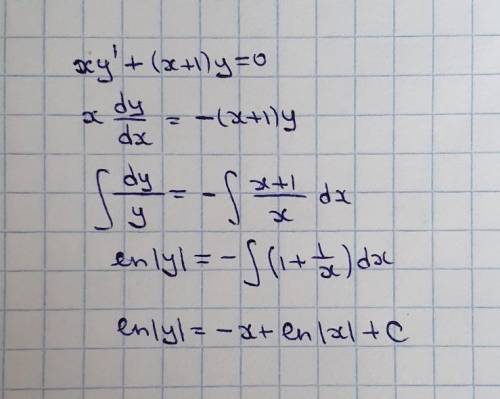 xy' + (x+1)y = 0
x dy/dx = -(x+1)y
∫ dy/y = -∫ x+1/x dx
ln|y| = -∫(1 + 1/x)dx
ln|y| = -x + ln|x| + C